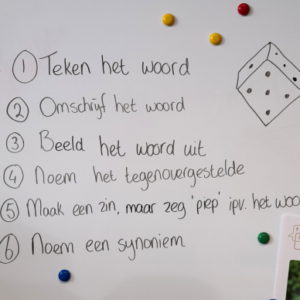 ① Teken het woord
② Omschrijf het woord
③ Beeld het woord uit
④ Noem het tegenovergestelde
⑤ Maak een zin, maar zeg 'piep' ipv. het woo
⑥ Noem een synoniem